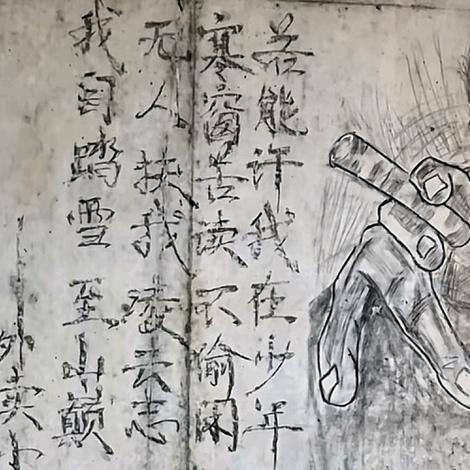 若能许我在少年
寒窗苦读不偷闲
无人扶我凌云志
我自踏雪至山巅
外卖